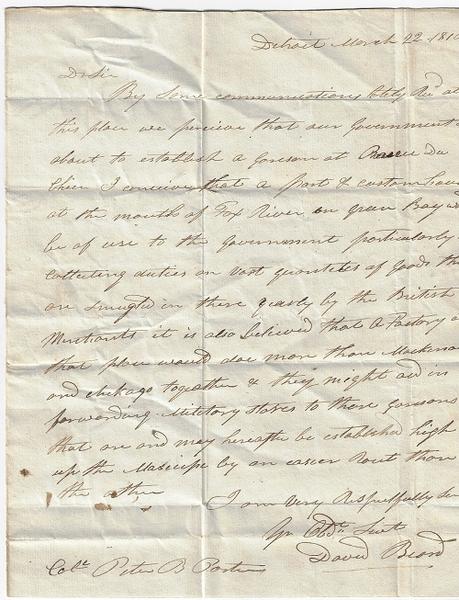 Detroit March 22 181
Dr Sir
By Some communications lately Recd at
this place we perceive that our Government
about to establish a Goreson at Prarie Du
Chien I conceive that a Port & custom hous
at the mouth of Fox River on green Bay w
be of use to the Government particularly
Collecting duties on Vast quantites of Goods th
are Smugled in there yearly by the British
Merchants it is also believed that A Factory a
that place would doe more than Mackinaw
and chekago togeather & they might aid in
forwarding Military Stores to there Goresons
that are and may hereafter be established high
up the Masicipe by an easier Rout than
the other
I am Very Respectfully Sir
Yr Obdt Servt
David Beard
Col. Peter B Porter